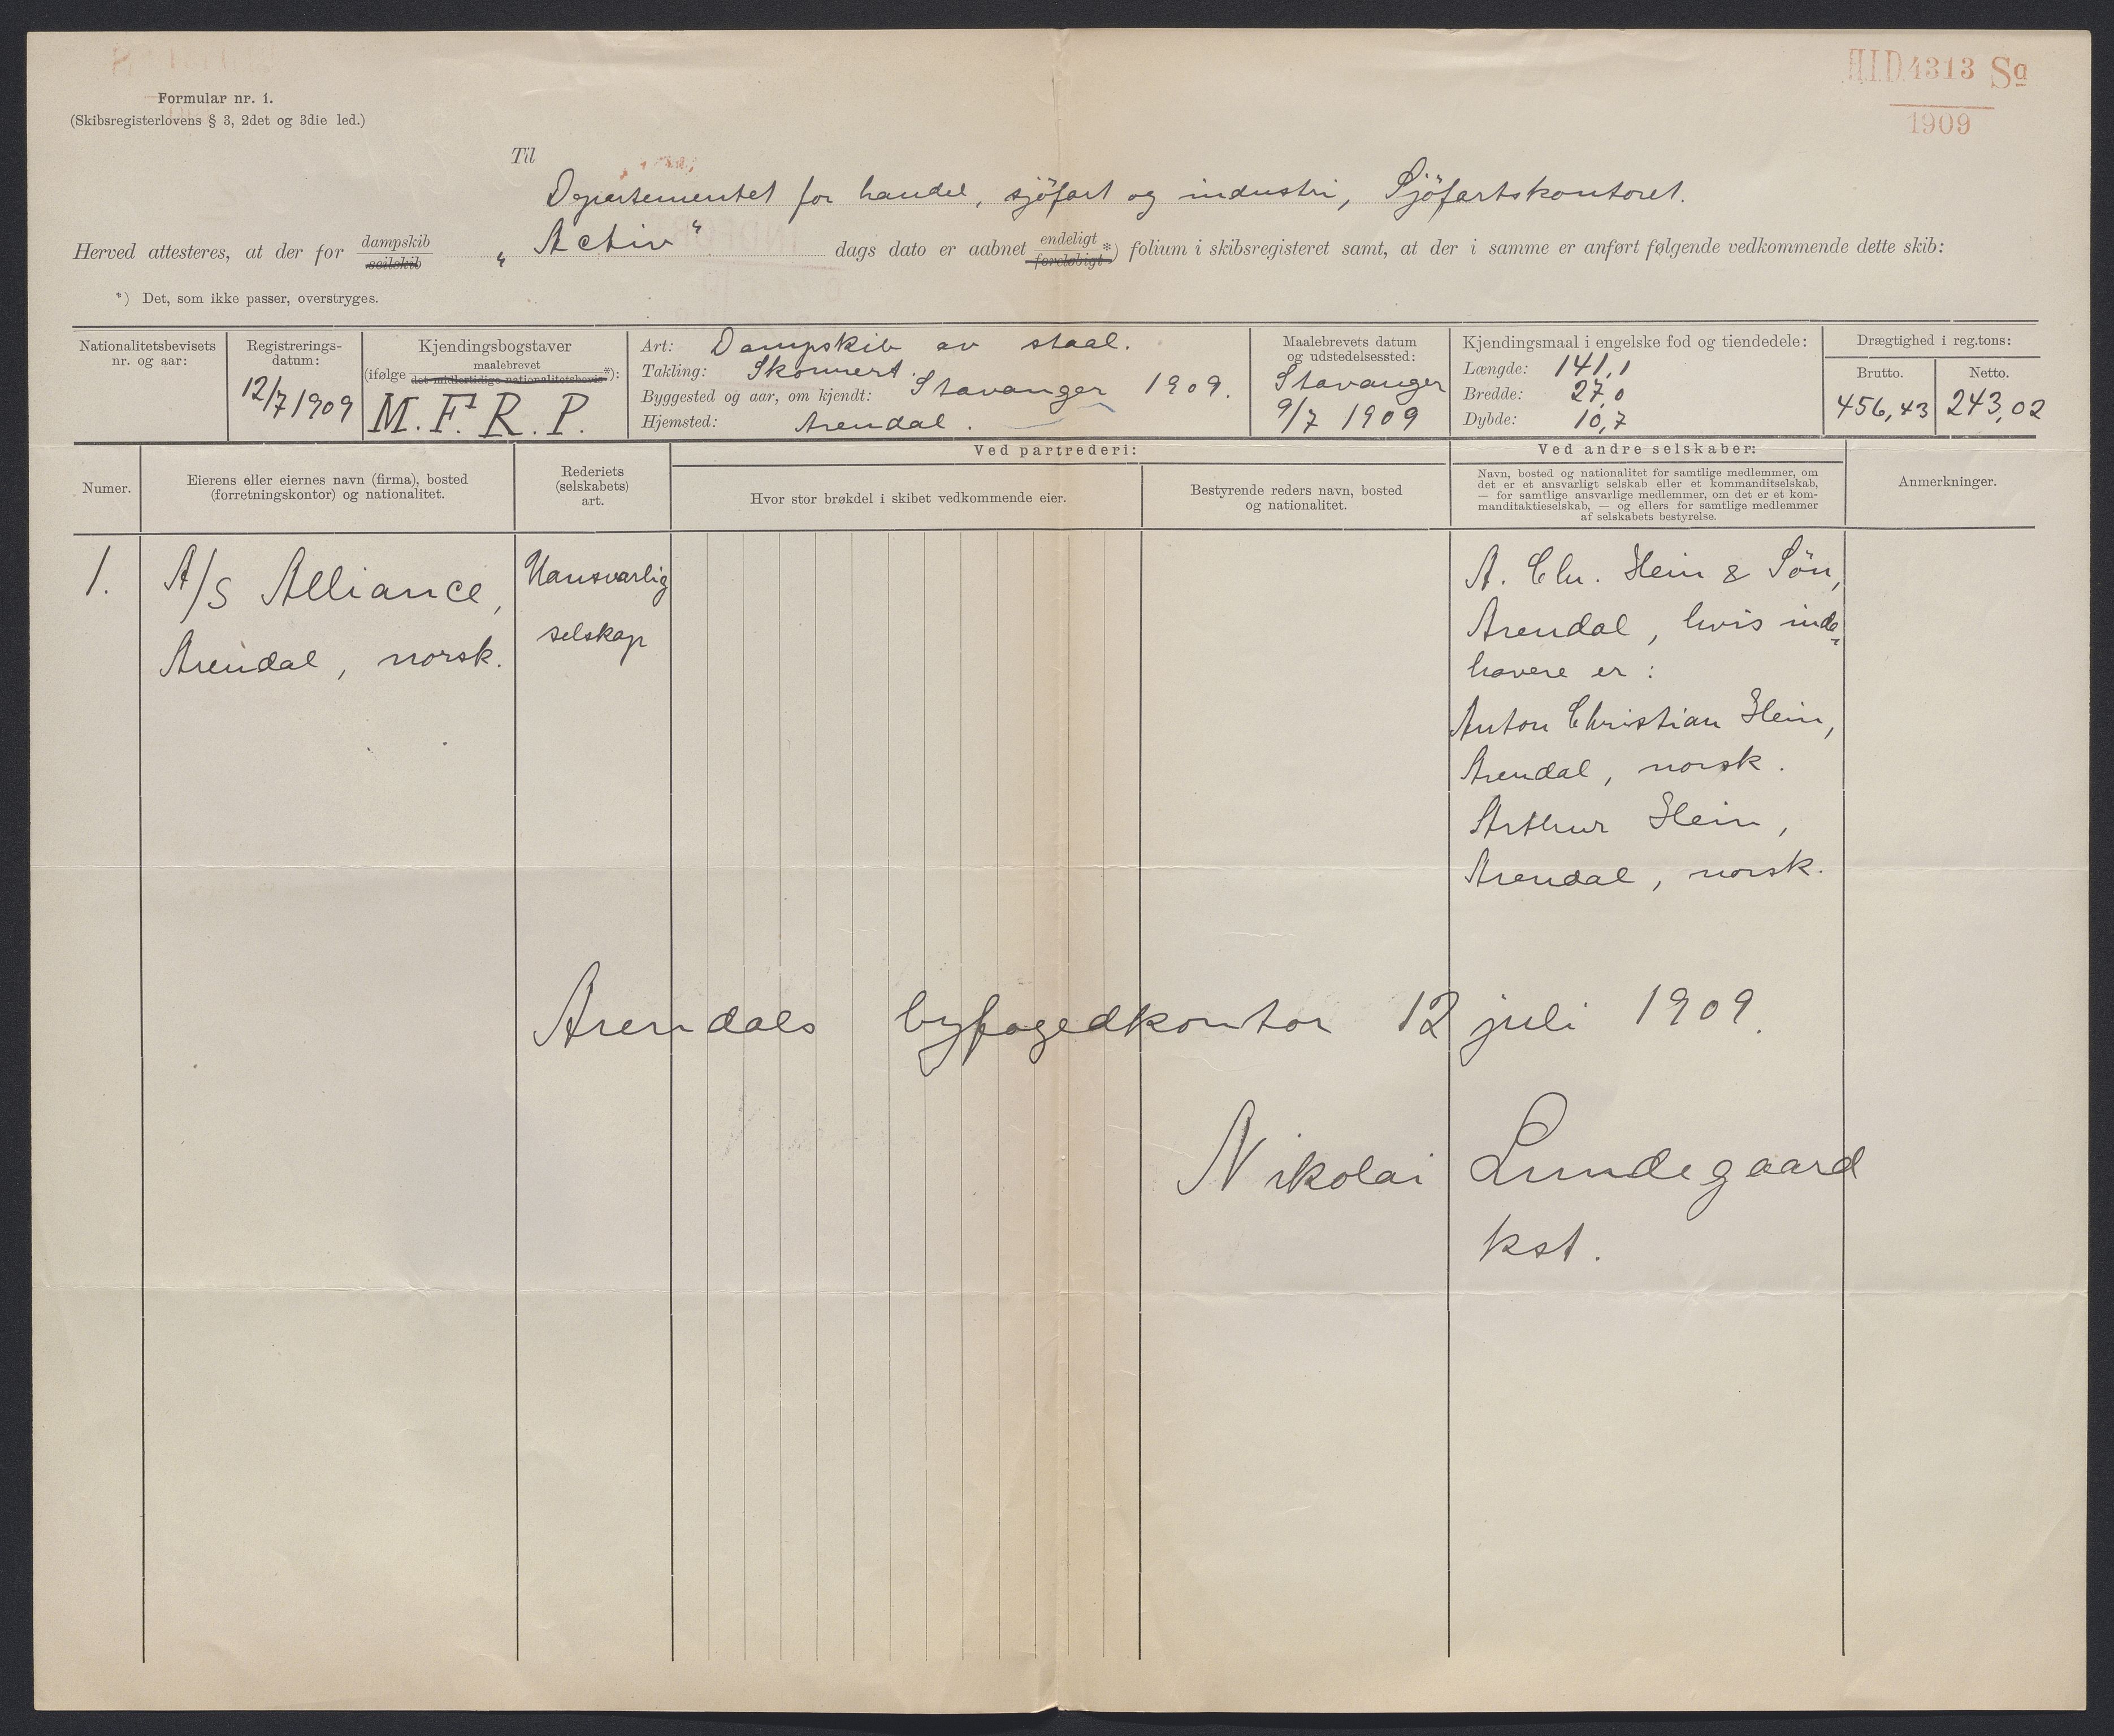 H.I.D. 4313 Sa
1909
Formular nr. 1.
(Skibsregisterlovens § 3, 2det og 3die led.)
Til
Departementet for handel, sjöfart og industri, Sjöfartskontoret.
Herved attesteres, at der for dampskib seilskib „Activ“ dags dato er aabnet endeligt foreløbigt *) folium i skibsregisteret samt, at der i samme er anført følgende vedkommende dette skib:
*) Det, som ikke passer, overstryges.
Nationalitetsbevisets
nr. og aar:
Registrerings-
datum:
12/7 1909
Kjendingsbogstaver
(ifølge maalebrevet det midlertidige nationalitetsbevis *):
M. F. R. P.
Art: Dampskib av staal.
Takling: Skonnert.
Byggested og aar, om kjendt: Stavanger 1909.
Hjemsted: Arendal.
Maalebrevets datum
og udstedelsessted:
Stavanger
9/7 1909
Kjendingsmaal i engelske fod og tiendedele:
Længde: 141,1
Bredde: 27,0
Dybde: 10,7
Drægtighed i reg.tons:
Brutto.
456,43
Netto.
243,02
Numer.
Eierens eller eiernes navn (firma), bosted
(forretningskontor) og nationalitet.
Rederiets
(selskabets)
art.
Ved partrederi:
Hvor stor brøkdel i skibet vedkommende eier.
Bestyrende reders navn, bosted
og nationalitet.
Ved andre selskaber:
Navn, bosted og nationalitet for samtlige medlemmer, om
det er et ansvarligt selskab eller et kommanditselskab,
— for samtlige ansvarlige medlemmer, om det er et kom-
manditaktieselskab, — og ellers for samtlige medlemmer
af selskabets bestyrelse.
Anmerkninger.
1.
A/S Alliance,
Arendal, norsk.
Uansvarlig
selskap
A. Chr. Hein & Sön,
Arendal, hvis inde-
havere er:
Anton Christian Hein,
Arendal, norsk.
Arthur Hein,
Arendal, norsk.
Arendals byfogedkontor 12 juli 1909.
Nikolai Lundegaard
kst.